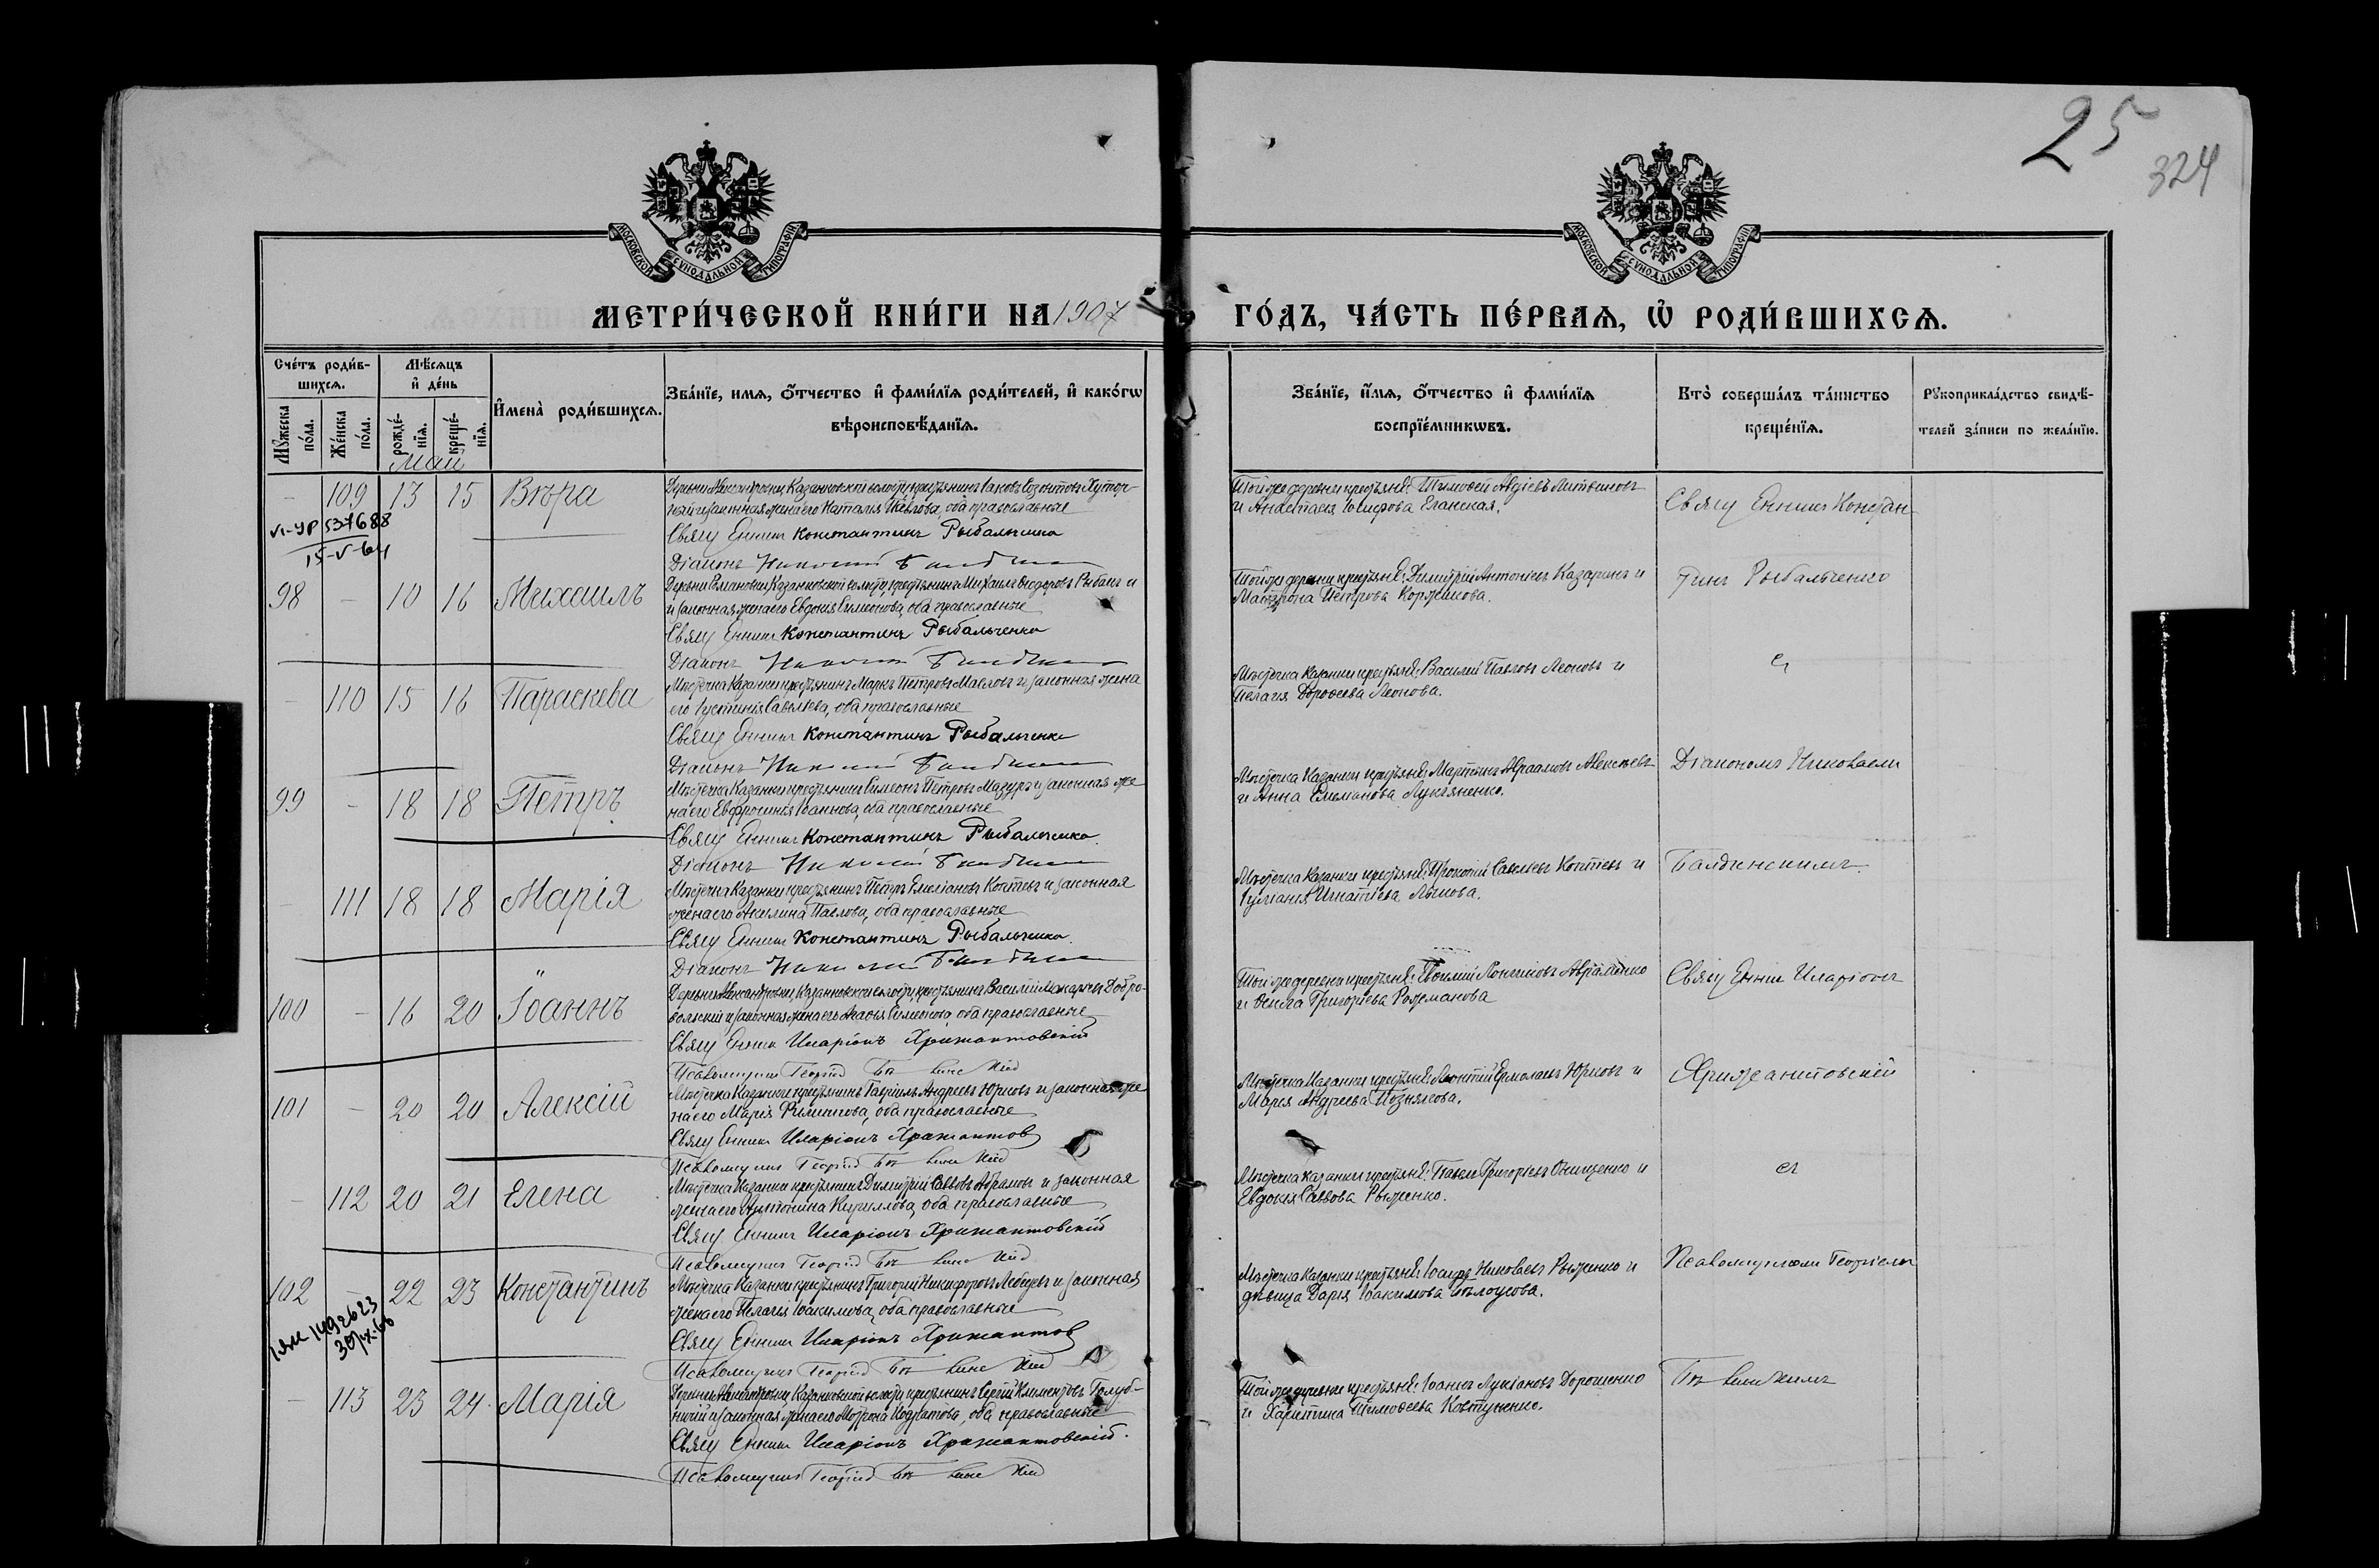 25
324
МОСКОВСКОЙ СѴНОДАЛЬНОЙ ТИПОГРАФІИ
МОСКОВСКОЙ СѴНОДАЛЬНОЙ ТИПОГРАФІИ
МЕТРИ́ЧЕСКОЙ КНИ́ГИ НА 1907
ГО́ДЪ, ЧА́СТЬ ПЕ́РВАѦ, Ѡ҆ РОДИ́ВШИХСѦ.
Сче́тъ роди́в-
шихсѧ.
Мꙋ́жеска по́ла.
Же́нска по́ла.
Мѣ́сѧцъ
и҆ де́нь
рожде́-
нїѧ.
креще́-
нїѧ.
И҆мена̀ роди́вшихсѧ.
Зва́нїе, имѧ, ѻ҆́тчество и҆ фами́лїѧ роди́телей, и҆ како́гѡ
вѣроисповѣ́данїѧ.
Зва́нїе, и҆́мѧ, ѻ҆́тчество и҆ фами́лїѧ
воспрїе́мникѡвъ.
Кто̀ соверша́лъ та́инство
креще́нїѧ.
Рꙋкоприкла́дство свидѣ́-
телей за́писи по жела́нїю.
Май
- 109 13 15 Вѣра
Деревни Александровки, Казанковской волости, крестьянинъ Іаковъ Созонтовъ Хутор-
и законная жена его Наталія, оба православные
Константинъ Рыбальченко
Діаконъ Николай
Той же деревни крестьяне: Тимофей Авдіевъ Литвиновъ
и Анастасія Іосифова Еланская.
Свящ Констан
VI-УР 537688
15-V-64
98 - 10 16 Михаилъ
Деревни Казанковской волости, крестьянинъ Михаилъ Ѳеодоровъ Рыбакъ и
законная жена его Евдокія Симеонова, оба православные
Константинъ Рыбальченко
Діаконъ Николай
Той же деревни крестьяне: Димитрій Антоніевъ Казаринъ и
Матрона Петрова Коржикова.
тинъ Рыбальченко
- 110 15 16 Параскева
Мѣстечка Казанки крестьянинъ Маркъ Петровъ Масловъ и законная жена
его Іустинія Савельева, оба православные
Константинъ Рыбальченко
Діаконъ Николай
Мѣстечка Казанки крестьяне: Василій Павловъ Леоновъ и
Пелагія Дороѳеева Леонова.
съ
99 - 18 18 Петръ
Мѣстечка Казанки крестьянинъ Симеонъ Петровъ Мазуръ и законная же
на его Евфросинія Іоаннова, оба православные
Константинъ Рыбальченко
Діаконъ Николай
Мѣстечка Казанки крестьяне: Мартинъ Авраамовъ Алексѣевъ
и Анна Емельянова Лукьяненко.
Діакономъ Николаемъ
- 111 18 18 Марія
Мѣстечка Казанки крестьянинъ Петръ Емеліановъ Коптевъ и законная
жена его Акилина Павлова, оба православные
Константинъ Рыбальченко
Діаконъ Николай
Мѣстечка Казанки крестьяне: Прокопій Савельевъ Коптевъ и
Іуліанія Игнатіева Лыкова.
Балдинскимъ.
100 - 16 20 Іоаннъ
Деревни Александровки, Казанковской волости, крестьянинъ Василій Макаріевъ Добро-
вольскій и законная жена его Агаѳія Симеонова оба православные
Иларіонъ Хрижантовскій
Псаломщикъ Георгій
Той же деревни крестьяне: Евѳимій Логгиновъ Авраменко
и Ѳекла Григоріева Рожманова
Свящ Иларіонъ
101 - 20 20 Алексій
Мѣстечка Казанки крестьянинъ Гавріилъ Андреевъ Юрковъ и законная же
на его Марія Филиппова, оба православные
Иларіонъ Хрижантов
Псаломщикъ Георгій
Мѣстечка Казанки крестьяне: Леонтій Ермолаевъ Юрковъ и
Марія Андреева Познякова.
Хрижантовскій
- 112 20 21 Елена
Мѣстечка Казанки крестьянинъ Димитрій Саввовъ Абрамовъ и законная
жена его Антонина Кириллова, оба православные
Иларіонъ Хрижантовскій
Псаломщикъ Георгій
Мѣстечка Казанки крестьяне: Павелъ Григорьевъ Онищенко и
Евдокія Саввова Рыженко.
съ
102 - 22 23 Константинъ
Мѣстечка Казанки крестьянинъ Григорій Никифоровъ Лебедевъ и законная
жена его Пелагія Іоакимова, оба православные
Иларіонъ Хрижантов
Псаломщикъ Георгій
Мѣстечка Казанки крестьяне: Іосифъ Николаевъ Рыженко и
дѣвица Дарія Іоакимова Бѣлоусова.
Псаломщикомъ Георгіемъ
1492623
30/IX-66
- 113 23 24 Марія
Деревни Александровки, Казанковской волости крестьянинъ Сергій Климентовъ Голуб-
ничій и законная жена его Матрона Кодратова, оба православные
Иларіонъ Хрижантовскій.
Псаломщикъ Георгій
Той же деревни крестьяне: Іоаннъ Лукіановъ Дорошенко
и Харитина Тимоѳеева Ковтуненко.